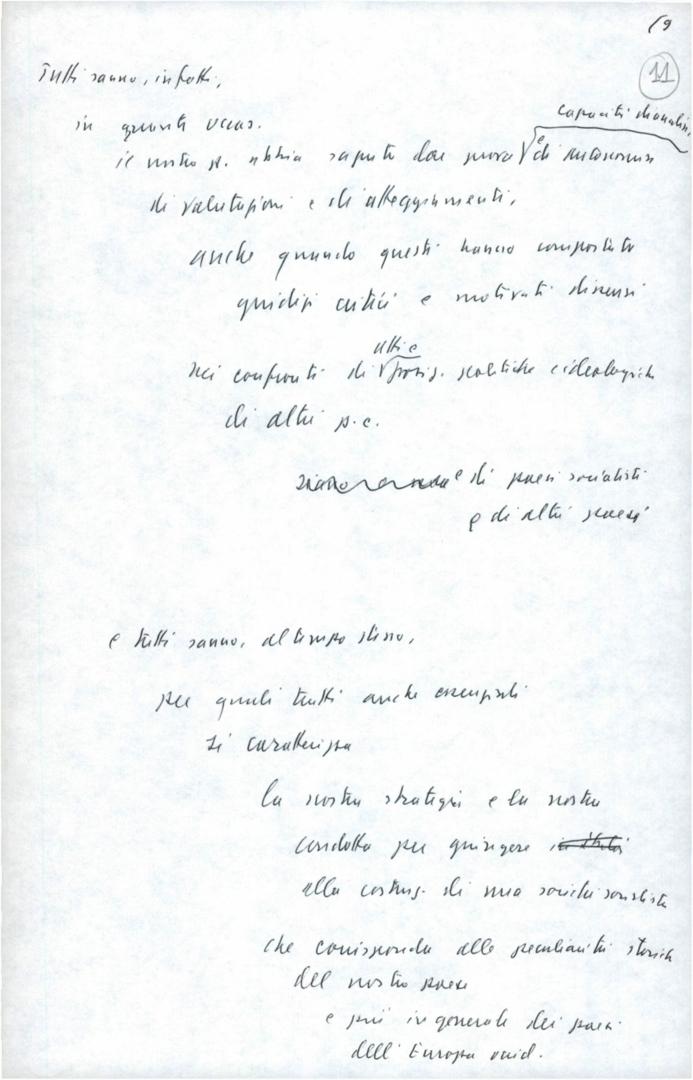 19
11
Tutti sanno, infatti,
in quante occas.
capacità di analisi,
il nostro p. abbia saputo dar prova e di autonomia
di valutazioni e di atteggiamenti,
anche quando questi hanno comportato
giudizi critici e motivati dissensi
atti e
nei confronti di posiz. politiche e ideologiche
di altri p.c.
e di paesi socialisti
e di altri paesi
e tutti sanno, al tempo stesso,
per quali tratti anche essenziali
si caratterizza
la nostra strategia e la nostra
condotta per giungere
alla costruz. di una società socialista
che corrisponda alle peculiarità storiche
del nostro paese
e più in generale dei paesi
dell'Europa occid.